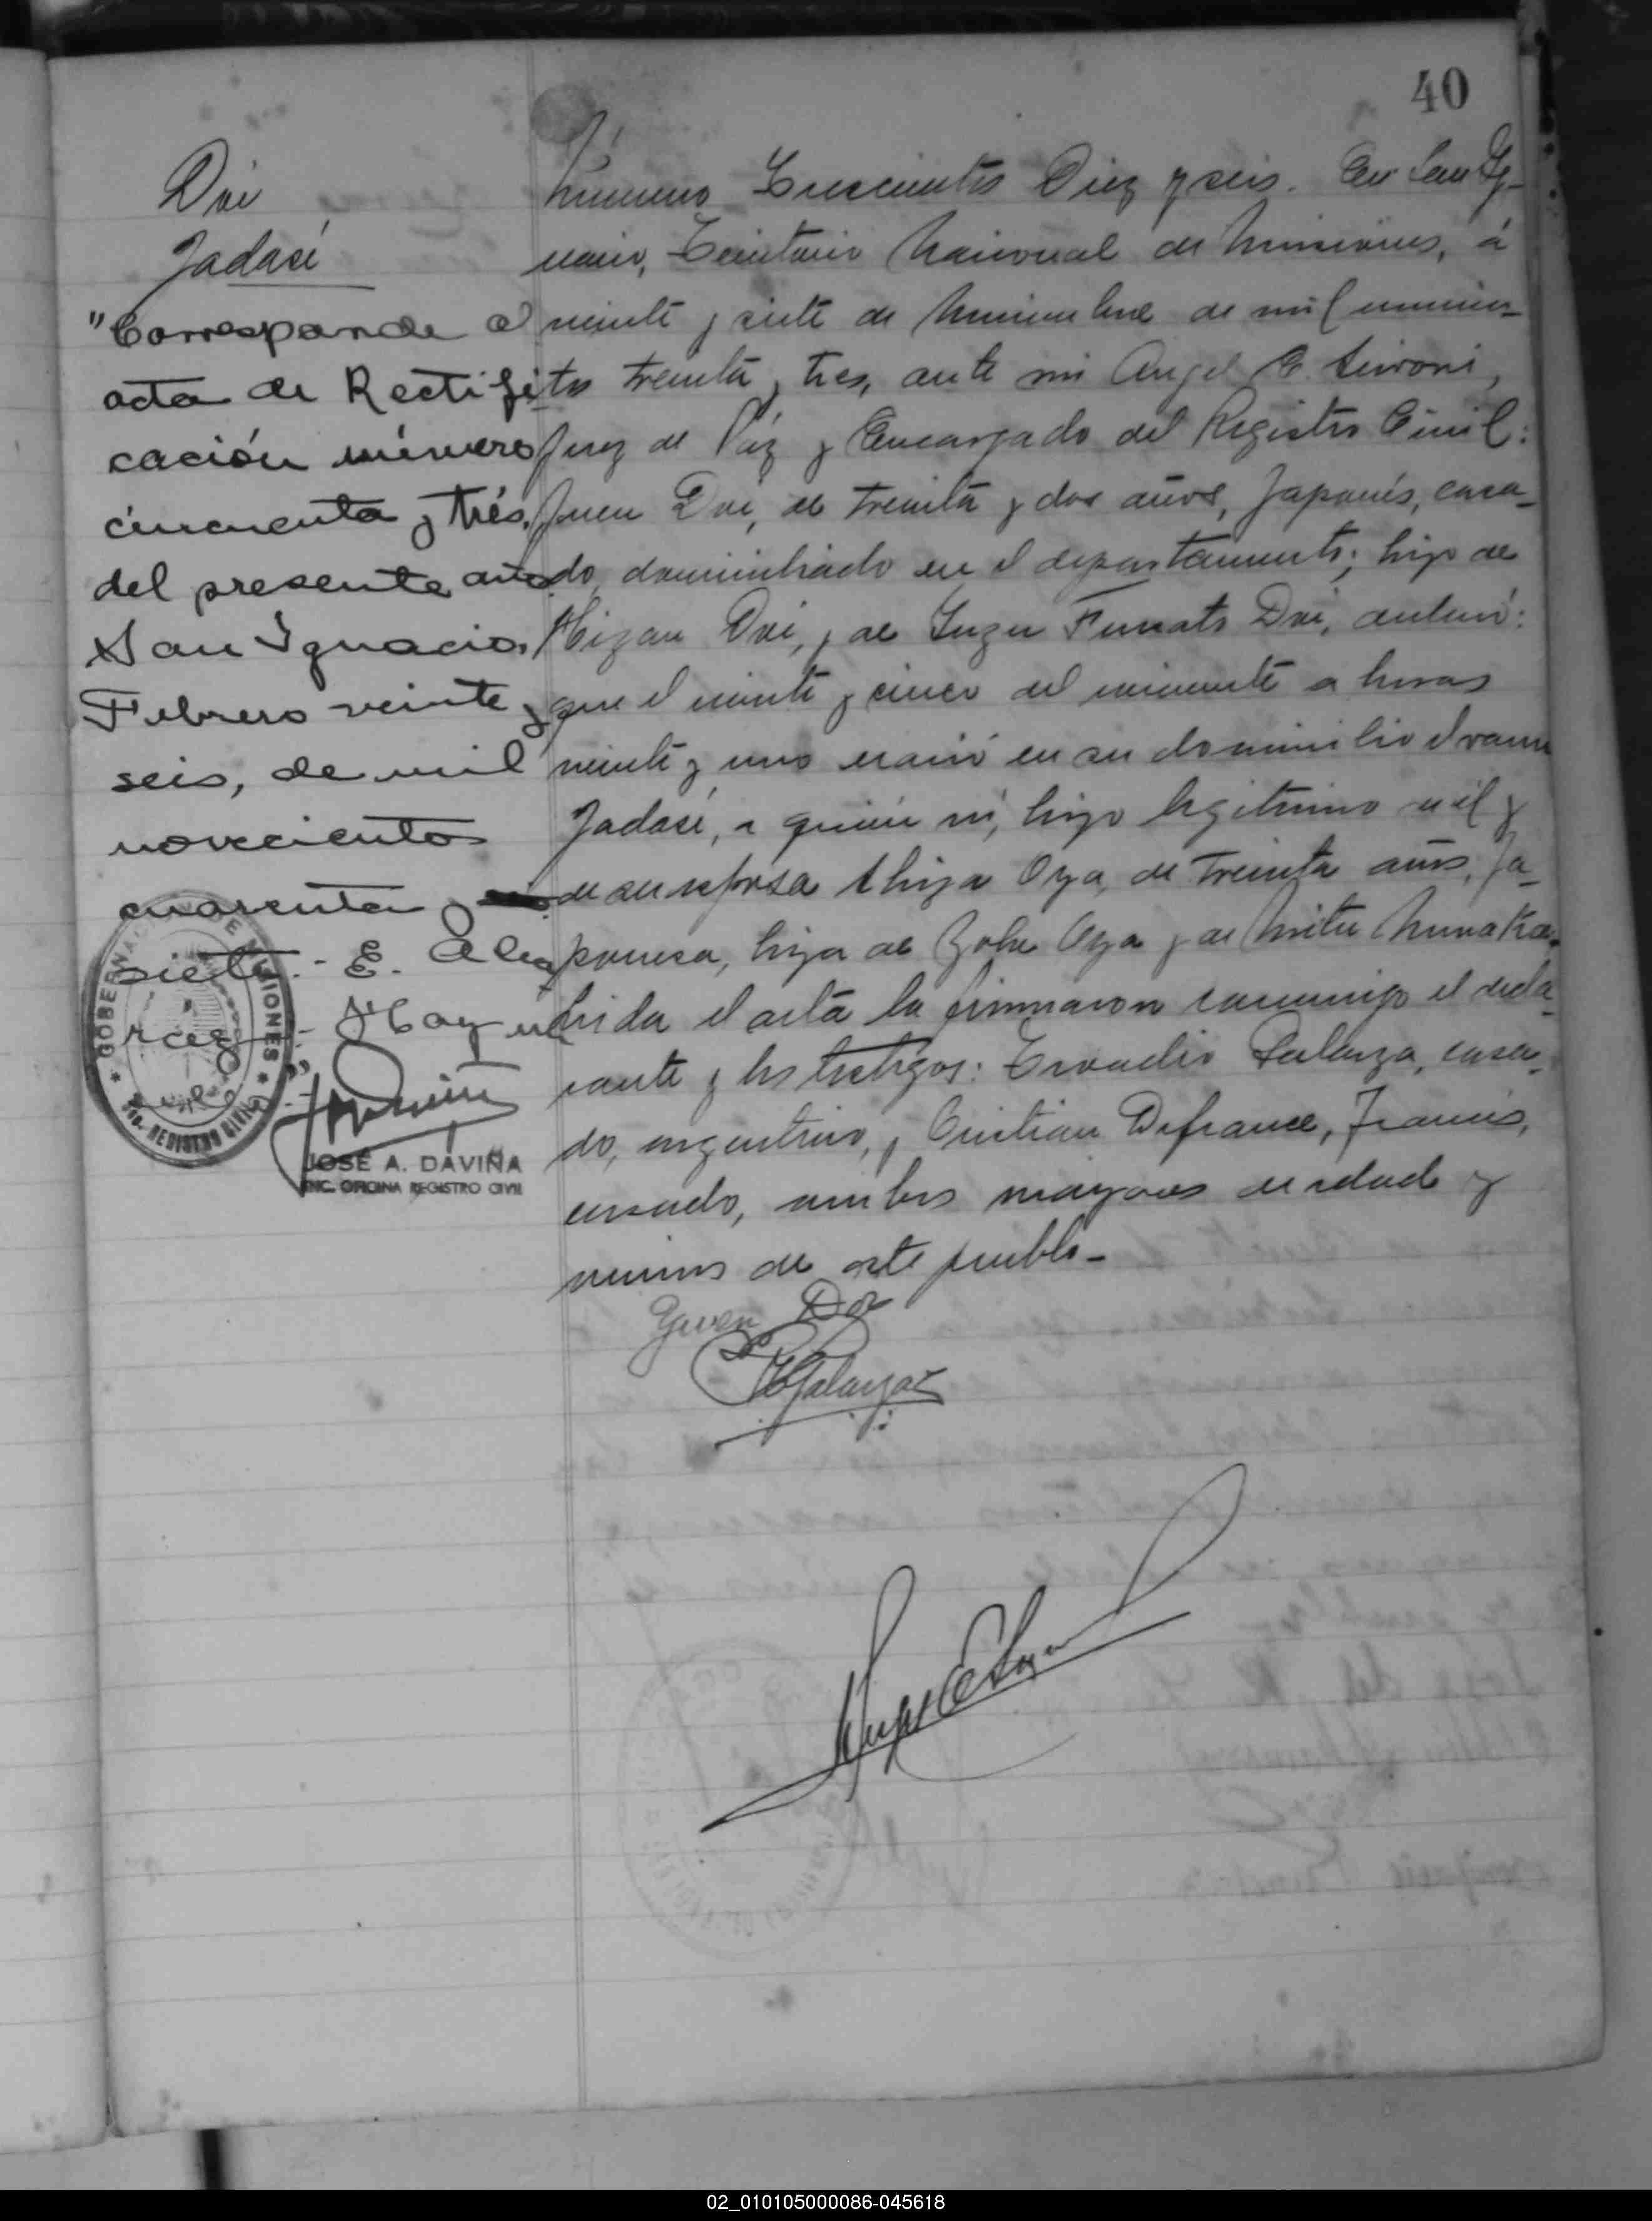 40
Doi
Jadasí
"Corresponde al
acta de Rectifi
cación número
cincuenta y trés.
del presente año
San Ignacio,
Febrero veinte y
seis, de mil
novecientos
cuarenta y
siete.- E.
JOSÉ A. DAVIÑA
ENC. OFICINA REGISTRO CIVIL
GOBERNACION DE MISIONES
REGISTRO CIVIL
Número Trescientos Diez y seis. En San Ig-
nacio, Territorio Nacional de Misiones, á
veinte y siete de Noviembre de mil novecien-
tos treinta y tres, ante mi Angel E.
Juez de Páz y Encargado del Registro Civil:
Doi, de treinta y dos años, Japonés, casa-
do, domiciliado en el departamento; hijo de
Doi, y de Funato Doi, declaró:
que el veinte y cinco del corriente a horas
veinte y uno nació en su domicilio el varon
Jadasí, a quién vi, hijo legitimo de él y
de su esposa Oya, de treinta años, Ja-
ponesa, hija de Oya y de
Leida el acta la firmaron conmigo el decla-
rante y los testigos: Palanza, casa-
do, argentino, y Cristian Defrance, Francés,
casado, ambos mayores de edad y
vecinos de este pueblo-
Doi
02_010105000086-045618